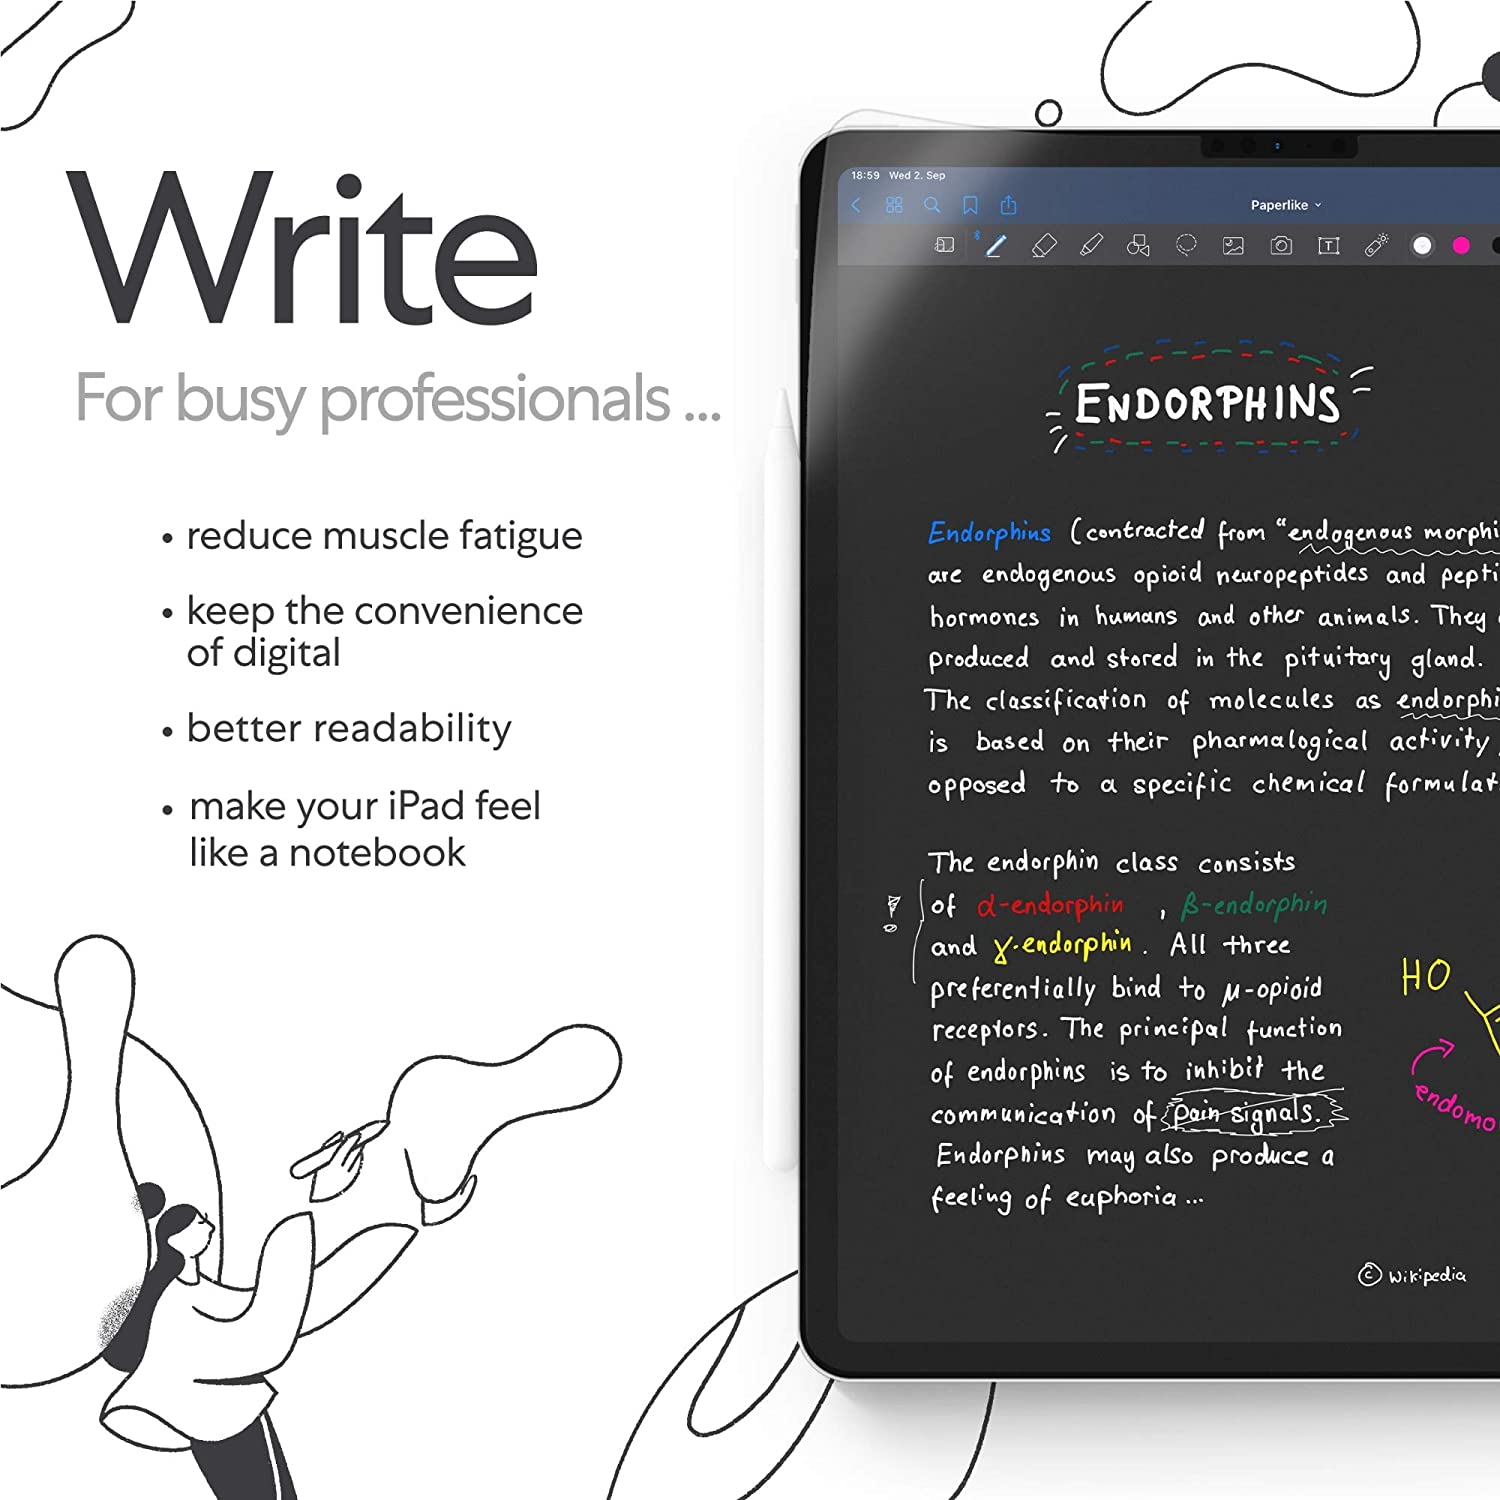 Write
For busy professionals ...
• reduce muscle fatigue
• keep the convenience
of digital
• better readability
• make your iPad feel
like a notebook
18:59 Wed 2. Sep
Paperlike
T
ENDORPHINS
Endorphins (contracted from "endogenous morphi
are endogenous opioid neuropeptides and pepti
hormones in humans and other animals. They
produced and stored in the pituitary gland.
The classification of molecules as endorphi
is based on their pharmalogical activity,
opposed to a specific chemical formulat
The endorphin class consists
of α-endorphin , β-endorphin
and γ-endorphin. All three
preferentially bind to μ-opioid
receptors. The principal function
of endorphins is to inhibit the
communication of pain signals.
Endorphins may also produce a
feeling of euphoria ...
!
HO
endomo
© Wikipedia